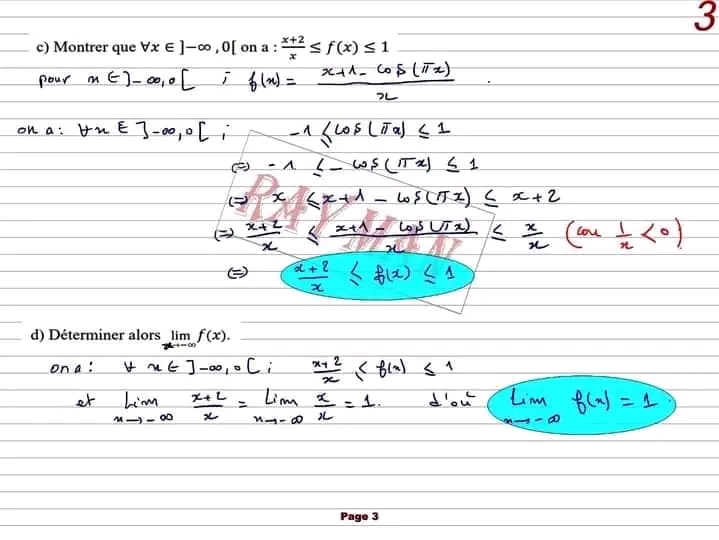 3
c) Montrer que ∀x ∈ ]−∞ , 0[ on a : (x+2)/x ≤ f(x) ≤ 1
pour x ∈ ]-∞,0[ ; f(x) = (x+1-cos(πx))/x .
on a : ∀x ∈ ]-∞,0[ ; -1 ≤ cos(πx) ≤ 1
(=) -1 ≤ -cos(πx) ≤ 1
(=) x ≤ x+1 - cos(πx) ≤ x+2
(=) (x+2)/x ≤ (x+1 - cos(πx))/x ≤ x/x (car 1/x < 0)
(=) (x+2)/x ≤ f(x) ≤ 1
RAYMAN
d) Déterminer alors lim x→-∞ f(x).
on a : ∀ x ∈ ]-∞,0[ ; (x+2)/x ≤ f(x) ≤ 1
et Lim x→-∞ (x+2)/x = Lim x→-∞ x/x = 1. d'où Lim x→-∞ f(x) = 1
Page 3